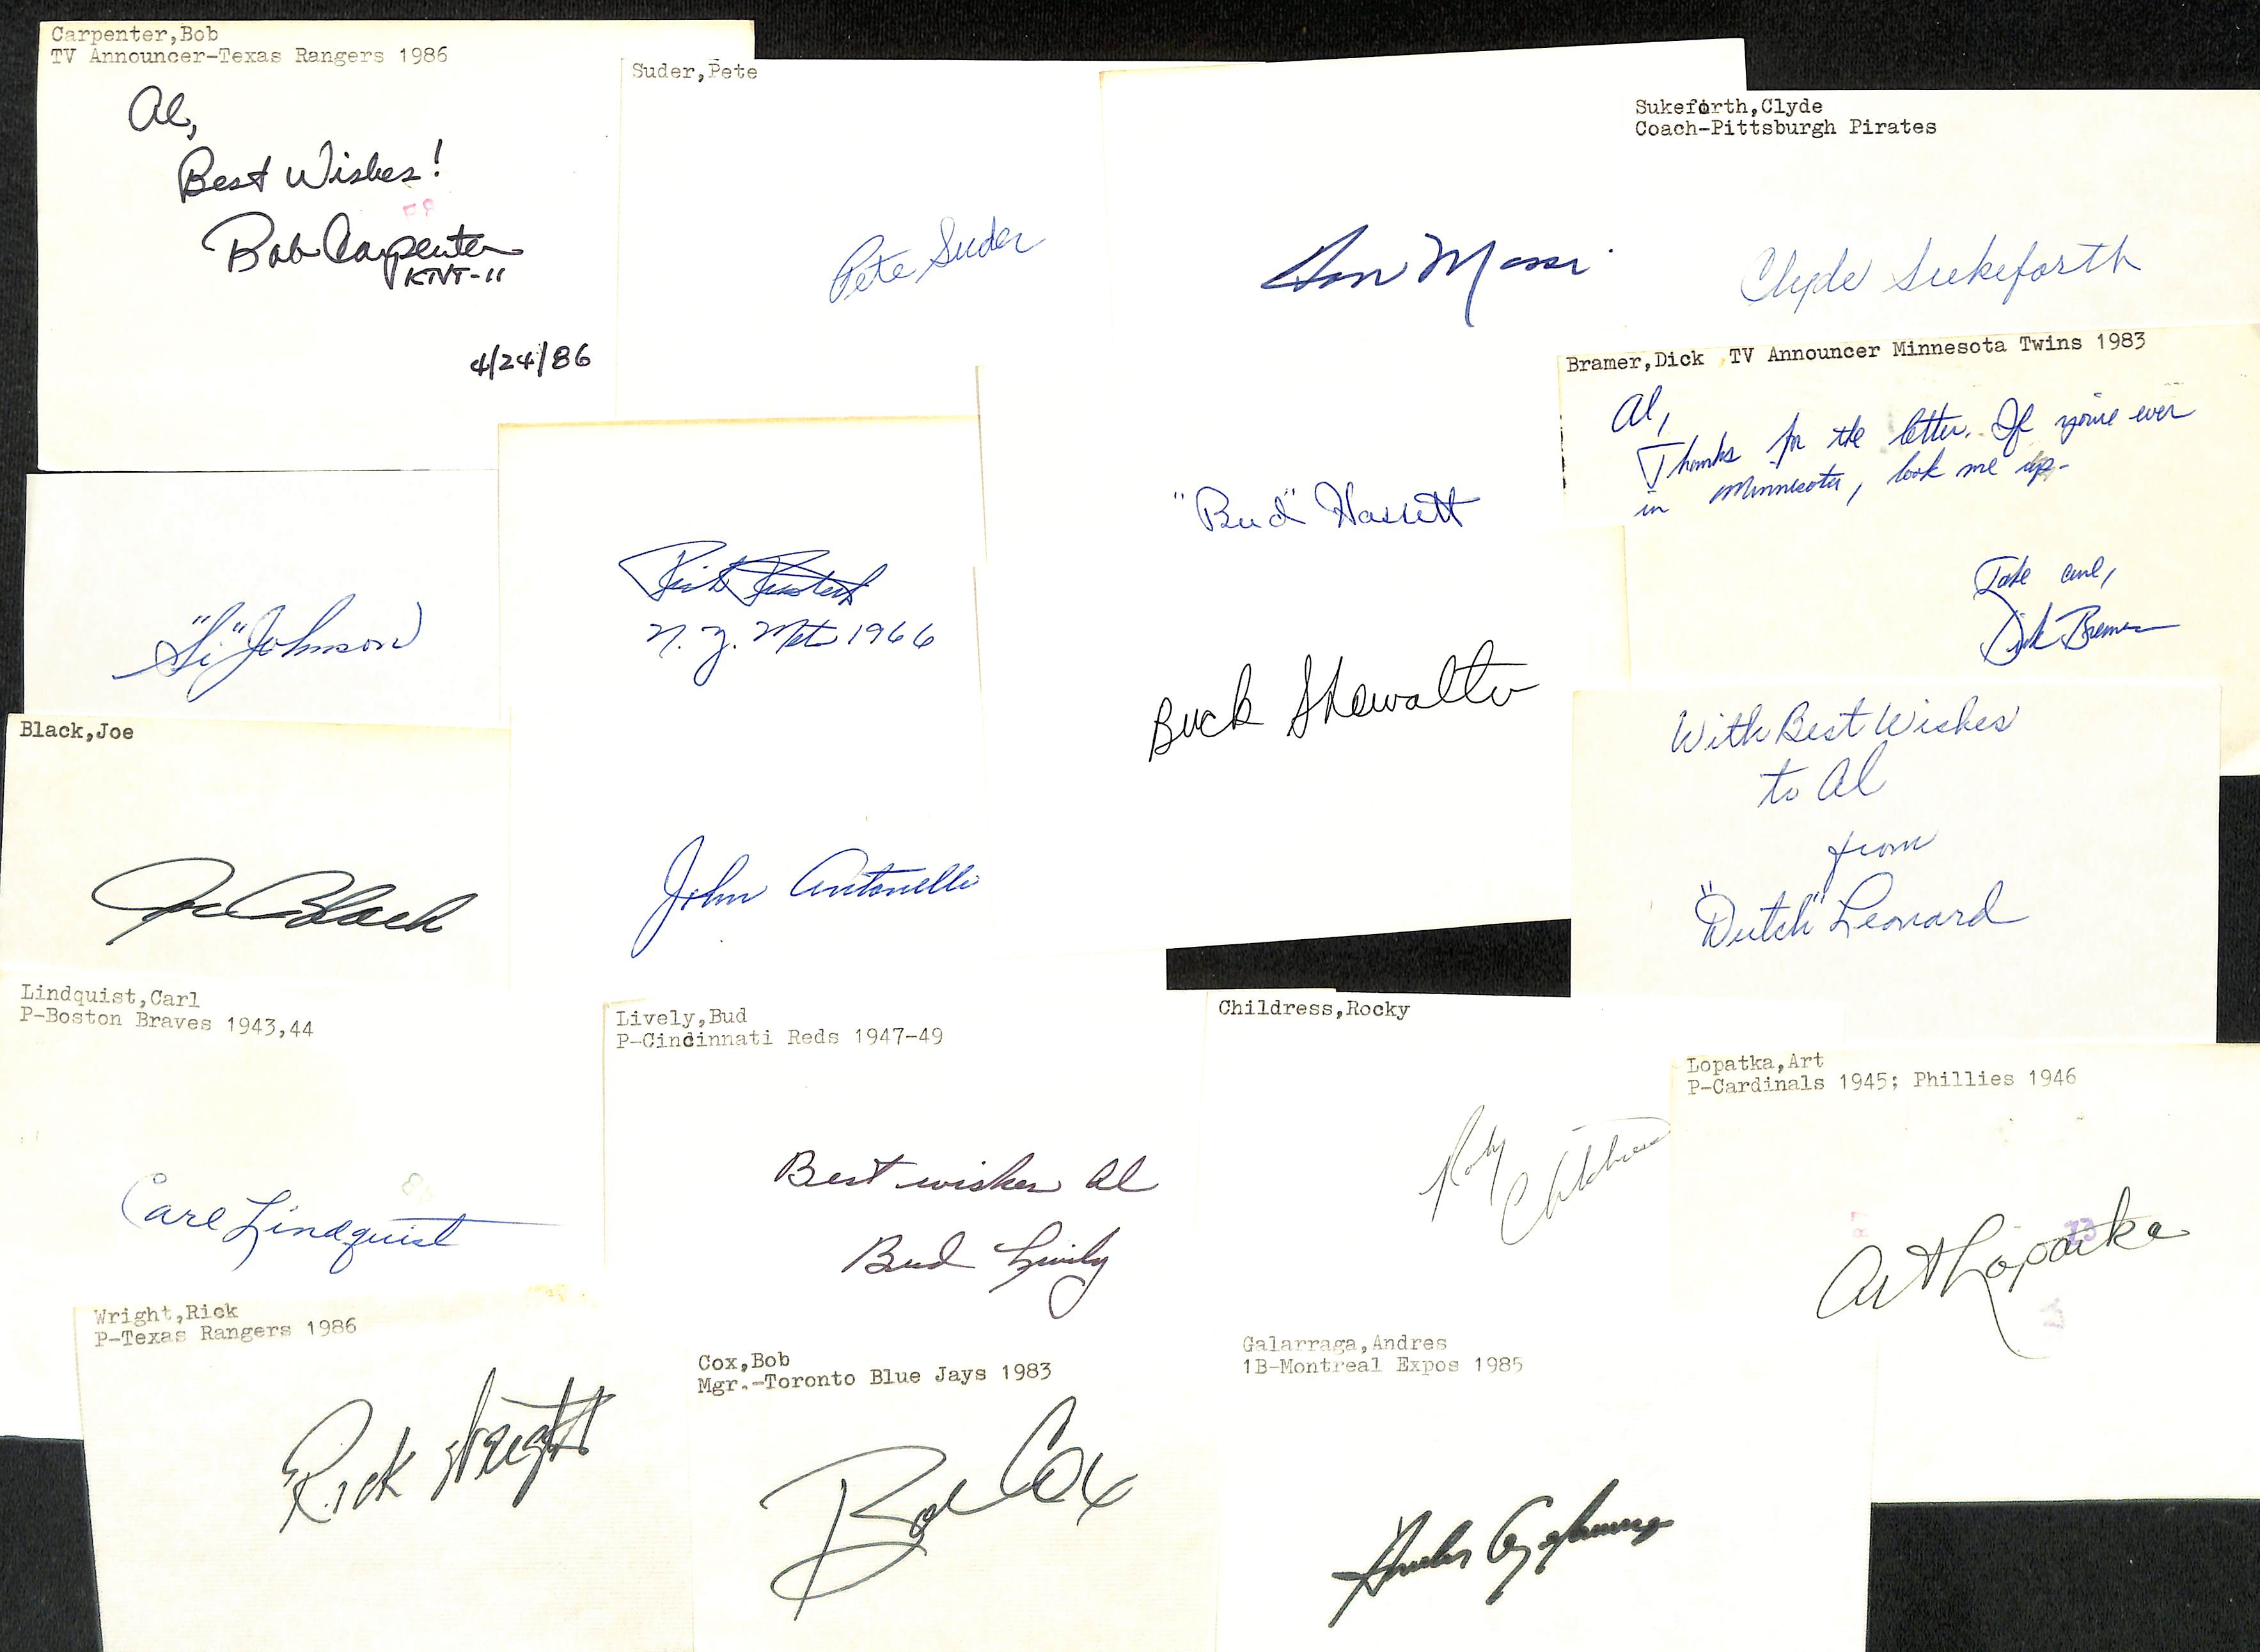 Carpenter,Bob
TV Announcer-Texas Rangers 1986
Al,
Best Wishes!
Bob Carpenter
KTVT-11
4/24/86
Suder,Pete
Pete Suder
Don Mossi
Sukeforth,Clyde
Coach-Pittsburgh Pirates
Clyde Sukeforth
Bramer,Dick , TV Announcer Minnesota Twins 1983
Al,
Thanks for the letter. If you're ever
in Minnesota, look me up-
Take care,
Dick Bremer
"Si" Johnson
N.Y. Mets 1966
"Bud" Hassett
Buck Showalter
With Best Wishes
to Al
from
"Dutch" Leonard
Black,Joe
Joe Black
John Antonelli
Lindquist,Carl
P-Boston Braves 1943,44
Carl Lindquist
Lively,Bud
P-Cincinnati Reds 1947-49
Best wishes Al
Bud Lively
Childress,Rocky
Rocky Childress
Lopatka,Art
P-Cardinals 1945; Phillies 1946
Art Lopatka
Wright,Rick
P-Texas Rangers 1986
Rick Wright
Cox,Bob
Mgr.-Toronto Blue Jays 1983
Bob Cox
Galarraga,Andres
1B-Montreal Expos 1985
Andres Galarraga